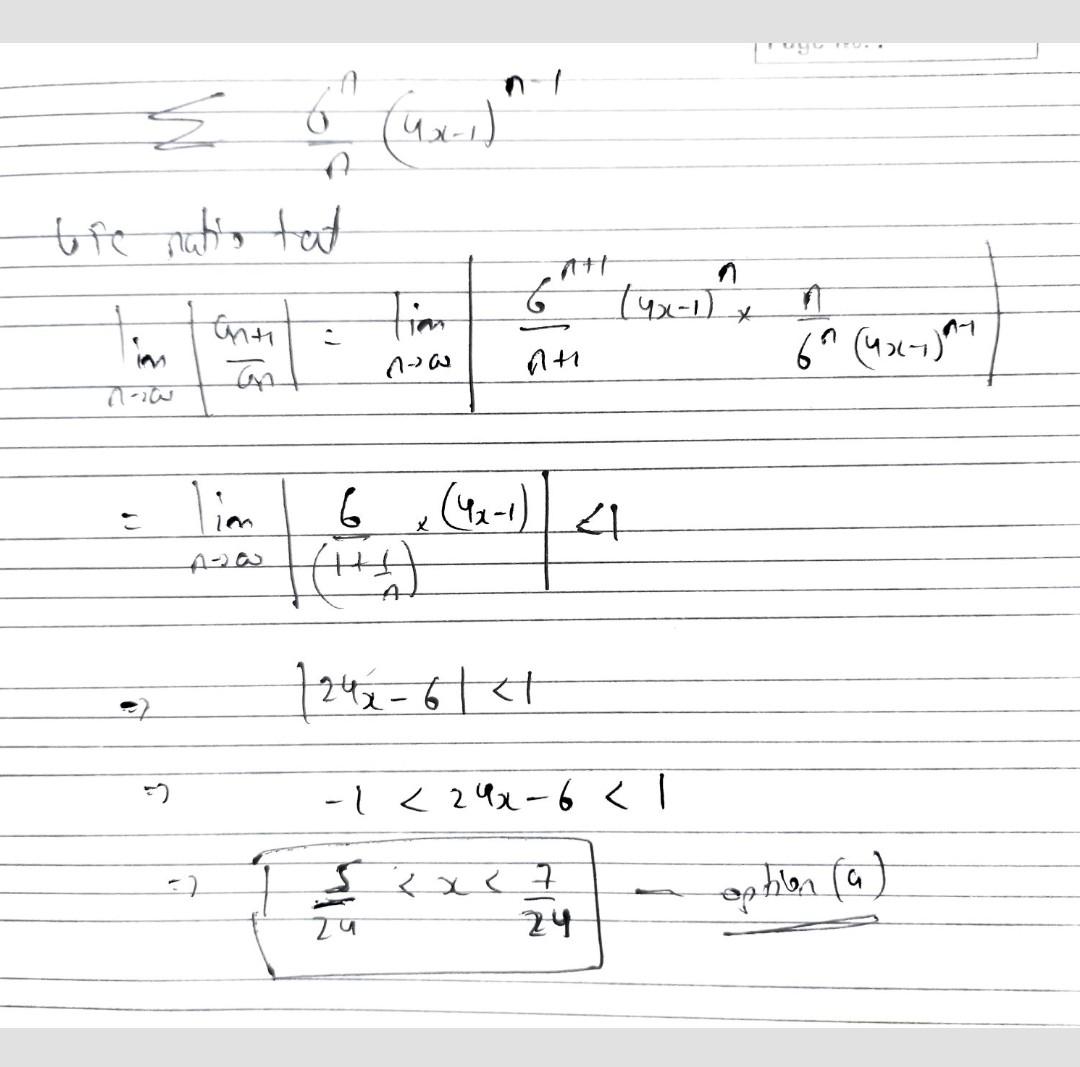 Σ 6^n/n (4x-1)^(n-1)
use ratio test
lim n→∞ |a_(n+1)/a_n| = lim n→∞ |6^(n+1)/(n+1) (4x-1)^n × n/(6^n (4x-1)^(n-1))|
= lim n→∞ |6/(1+1/n) × (4x-1)| <1
⇒ |24x-6| <1
⇒ -1 < 24x-6 < 1
⇒ 5/24 < x < 7/24 — option (a)